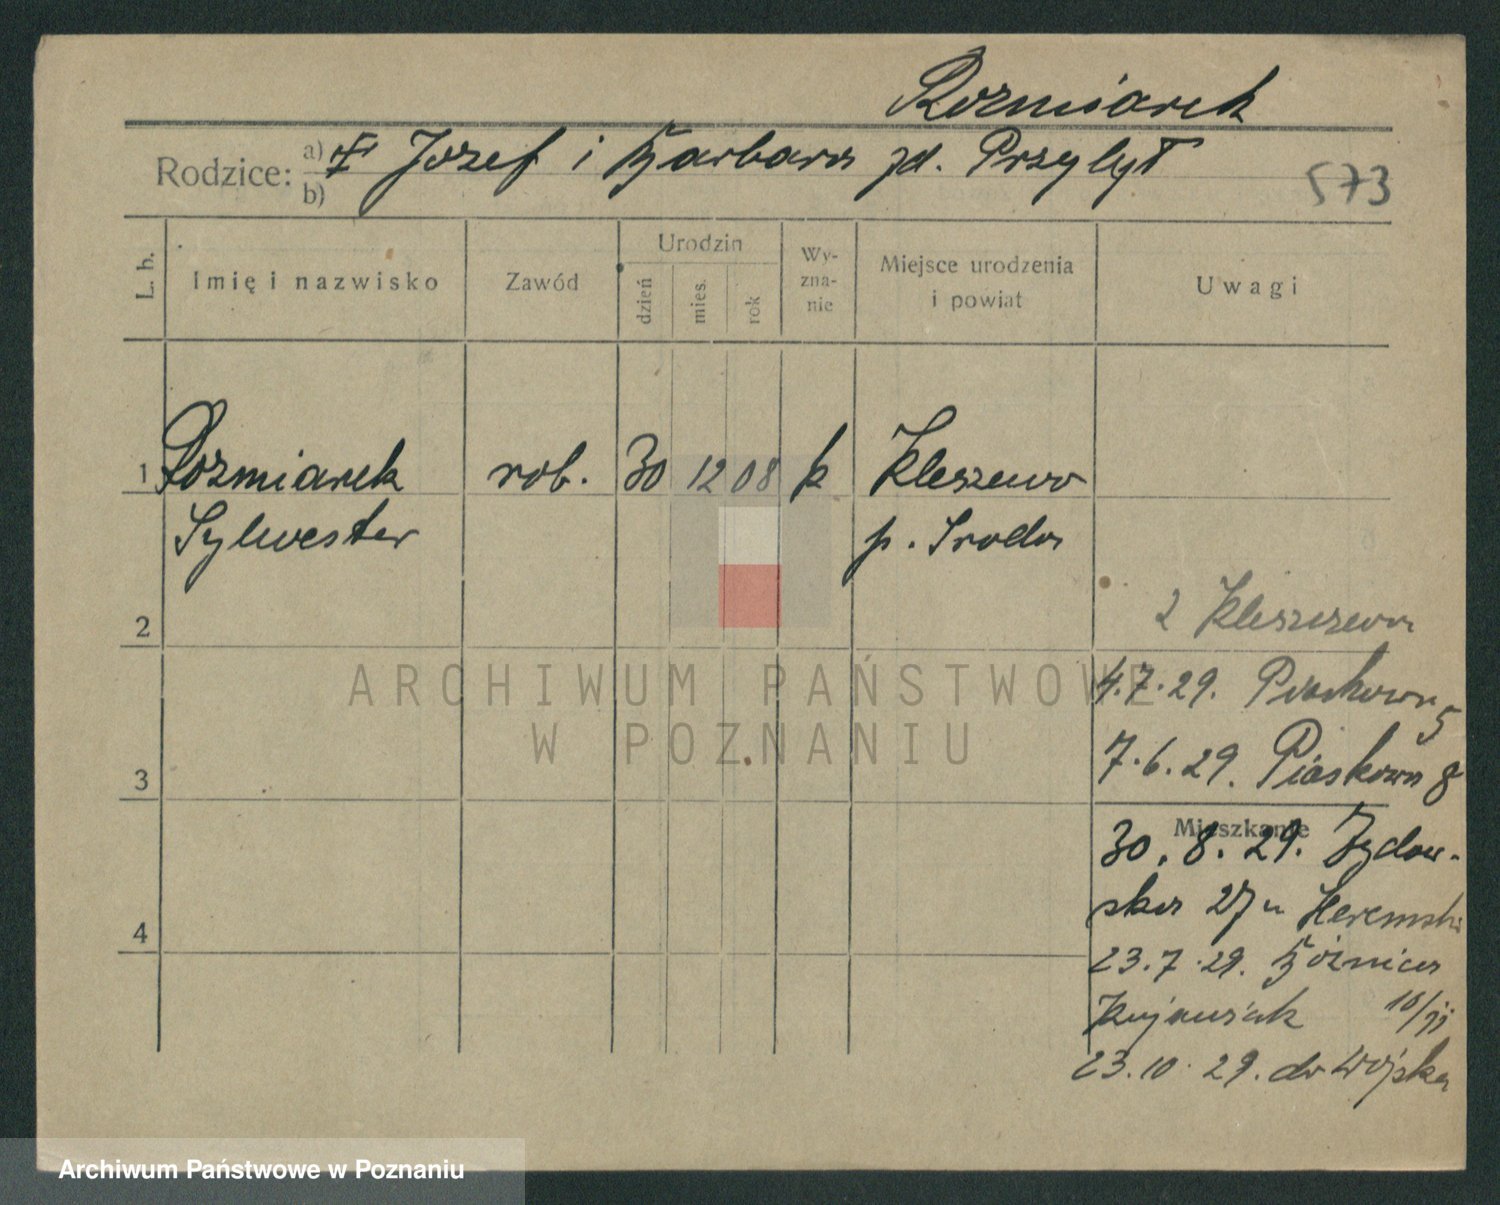 Rozmiarek
Rodzice: a) Józef i Barbara zd. Przybył
b)
573
L. b.
Imię i nazwisko
Zawód
Urodzin
dzień
mies.
rok
Wy-
zna-
nie
Miejsce urodzenia
i powiat
Uwagi
1 Rozmiarek rob. 30 12 08 k Kleszewo
Sylwester p. Sroda
2
z Kleszczewa
4.7.29. Piaskowa 5
7.6.29. Piaskowa 8
3
Mieszkanie
30.8.29. Żydow-
ska 27 u
4
23.7.29. Bóżnicza
Kujawiak 10/
23.10.29. do Wojska
ARCHIWUM PAŃSTWOWE
W POZNANIU
Archiwum Państwowe w Poznaniu